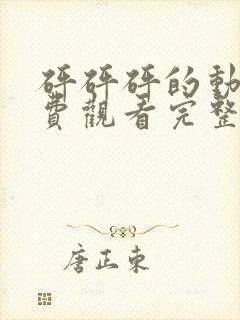 砰砰砰的動
費觀看完整
唐正東